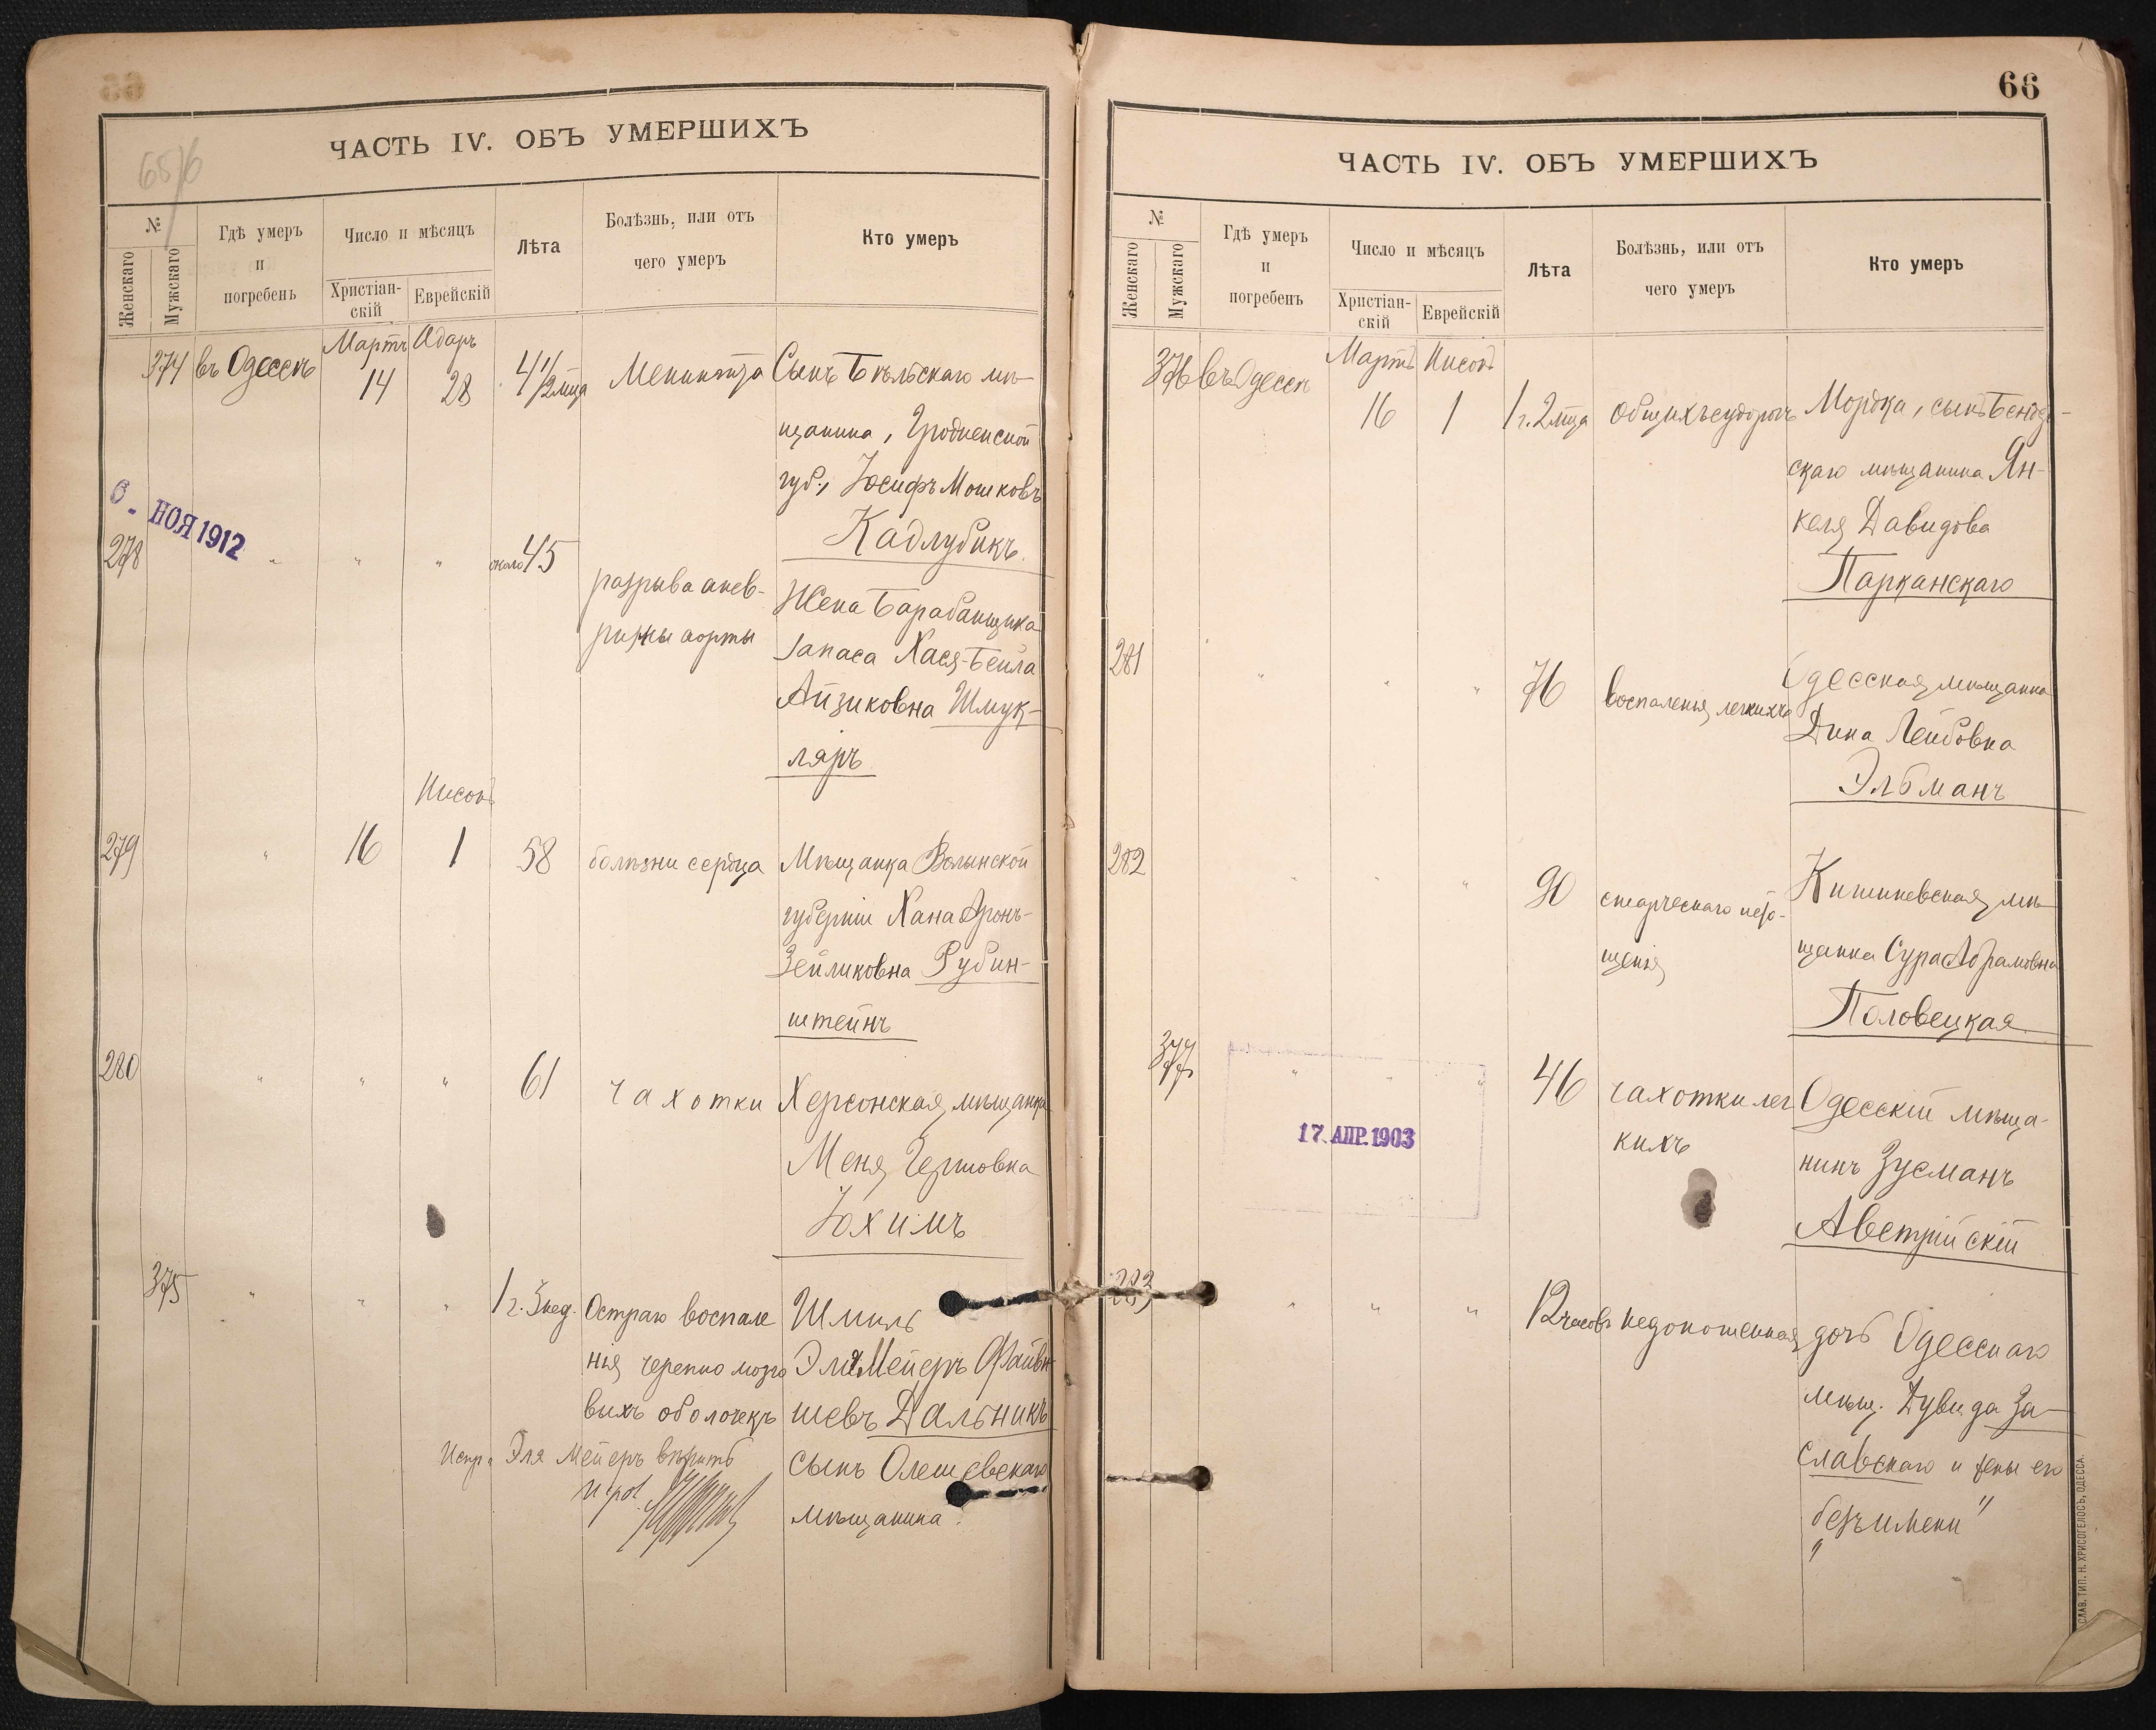 65/6
ЧАСТЬ IV. ОБЪ УМЕРШИХЪ
№
Женскаго
Мужскаго
Гдѣ умеръ
и
погребенъ
Число и мѣсяцъ
Христіан-
скій
Еврейскій
Лѣта
Болѣзнь, или отъ
чего умеръ
Кто умеръ
Мартъ Адаръ
374 въ Одессѣ 14 28 4 1/2 мца Менингита Сынъ Бѣльскаго мѣ-
щанина, Гродненской
губ., Іосифъ Мошковъ
Кадлубикъ
6 - НОЯ 1912
278 " " " около 45
разрыва анев-
ризмы аорты
Жена Барабанщика
запаса Хася-Бейла
Айзиковна Шмук-
ляръ
Нисонъ
279 " 16 1 58 болѣзни сердца Мѣщанка Волынской
губерніи Хана Аронъ-
Зейликовна Рубин-
штейнъ
280 " " " 61 чахотки Херсонская мѣщанка
Меня Гершовна
Іохимъ
375 " " " 1 г. 3 нед. Остраго воспале Шмиль
нія черепно мозго Эля Мейеръ Файви
выхъ оболочекъ шевъ Дальникъ
сынъ Олешевскаго
мѣщанина.
Испр. Эля Мейеръ вѣрить
66
ЧАСТЬ IV. ОБЪ УМЕРШИХЪ
№
Женскаго
Мужскаго
Гдѣ умеръ
и
погребенъ
Число и мѣсяцъ
Христіан-
скій
Еврейскій
Лѣта
Болѣзнь, или отъ
чего умеръ
Кто умеръ
Мартъ Нисонъ
376 въ Одессѣ 16 1 1 г. 2 мца общихъ судорогъ Мордка, сынъ Бендер-
скаго мѣщанина Ян-
келя Давидова
Парканскаго
281 " " " 76 воспаленія легкихъ Одесская мѣщанка
Дина Лейбовна
Эльманъ
282 " " " 90 старческаго исто-
щенія
Кишиневская мѣ-
щанка Сура Абрамовна
Половецкая
377 " " " 46 чахотки лег
кихъ
Одесскій мѣща-
нинъ Зусманъ
Австрійскій
17. АПР. 1903
283 " " " 12 часовъ недоношенная дочь Одесскаго
мѣщ. Дувида За-
славскаго и жены его
"безъ имени"
СЛАВ. ТИП. Н. ХРИСОГЕЛОСЪ, ОДЕССА.